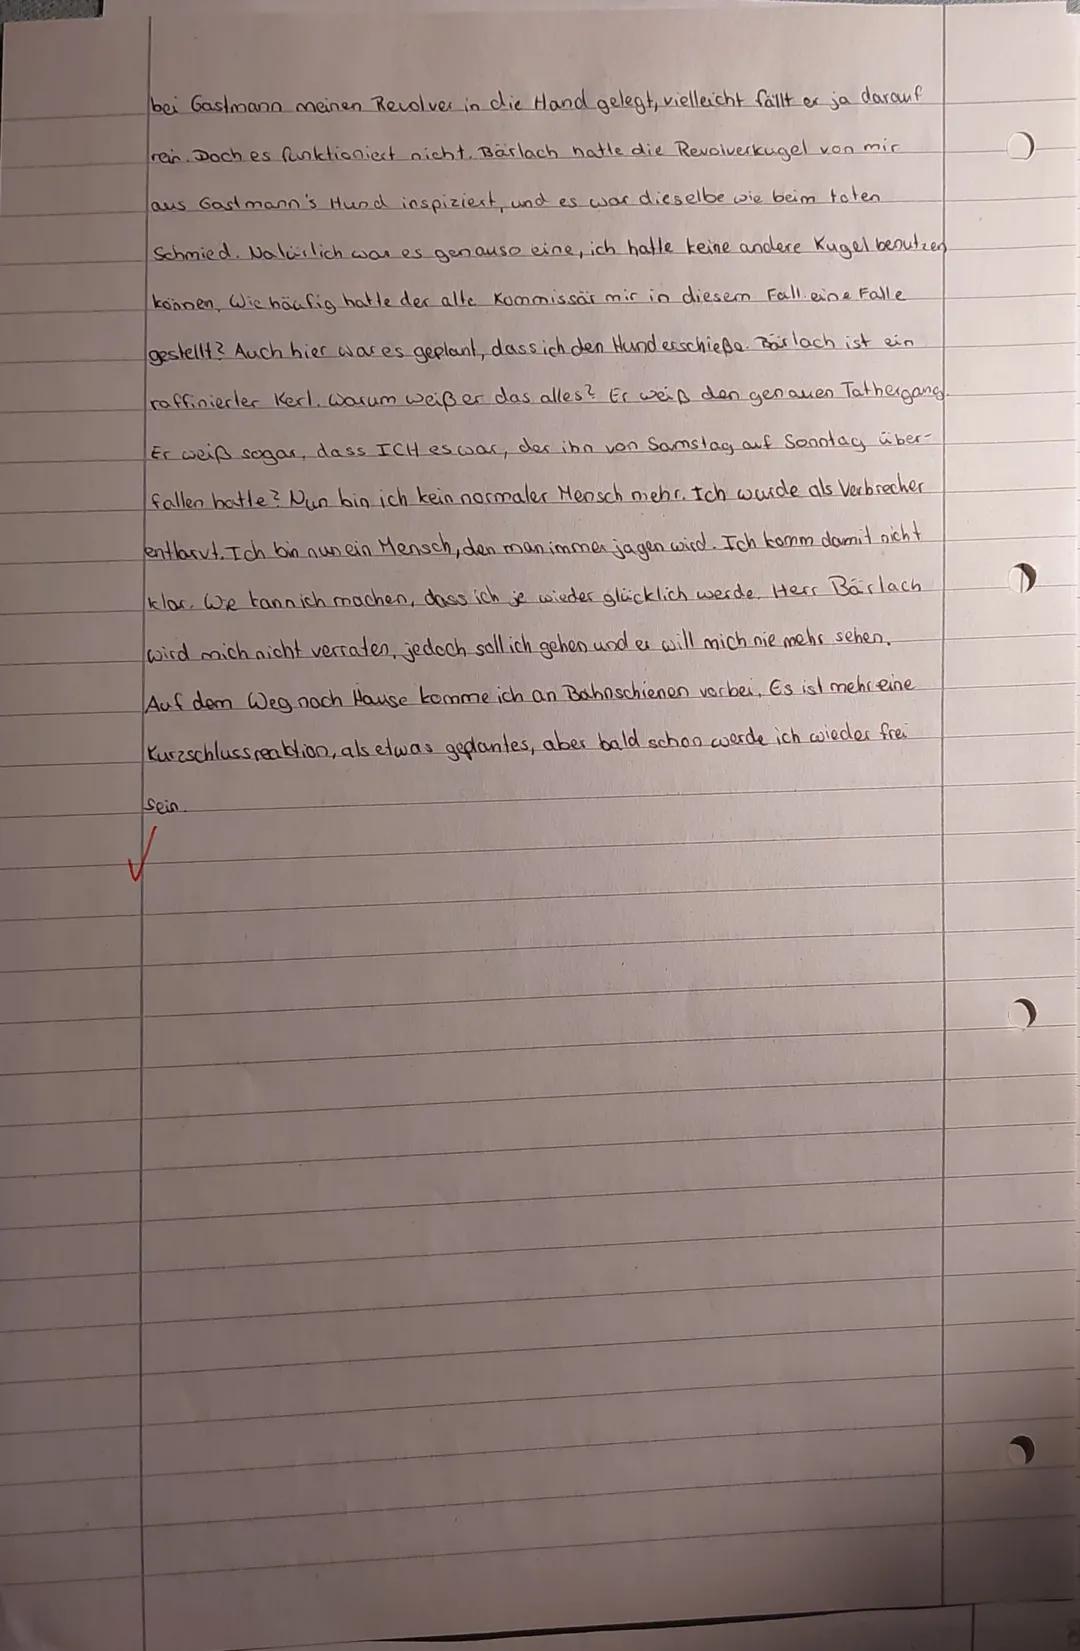 bei Gastmann meinen Revolver in die Hand gelegt, vielleicht fällt er ja darauf
rein. Doch es funktioniert nicht. Bärlach hatte die Revolverkugel von mir
aus Gastmann's Hund inspiziert, und es war dieselbe wie beim toten
Schmied. Natürlich war es genauso eine, ich hatte keine andere Kugel benutzen
können. Wie häufig hatte der alte Kommissär mir in diesem Fall eine Falle
gestellt? Auch hier war es geplant, dass ich den Hund erschieße. Bärlach ist ein
raffinierter Kerl. Warum weiß er das alles? Er weiß den genauen Tathergang.
Er weiß sogar, dass ICH es war, der ihn von Samstag auf Sonntag über-
fallen hatte? Nun bin ich kein normaler Mensch mehr. Ich wurde als Verbrecher
entlarvt. Ich bin nun ein Mensch, den man immer jagen wird. Ich komm damit nicht
klar. Wie kann ich machen, dass ich je wieder glücklich werde. Herr Bärlach
wird mich nicht verraten, jedoch soll ich gehen und er will mich nie mehr sehen.
Auf dem Weg nach Hause komme ich an Bahnschienen vorbei. Es ist mehr eine
Kurzschlussreaktion, als etwas geplantes, aber bald schon werde ich wieder frei
sein.